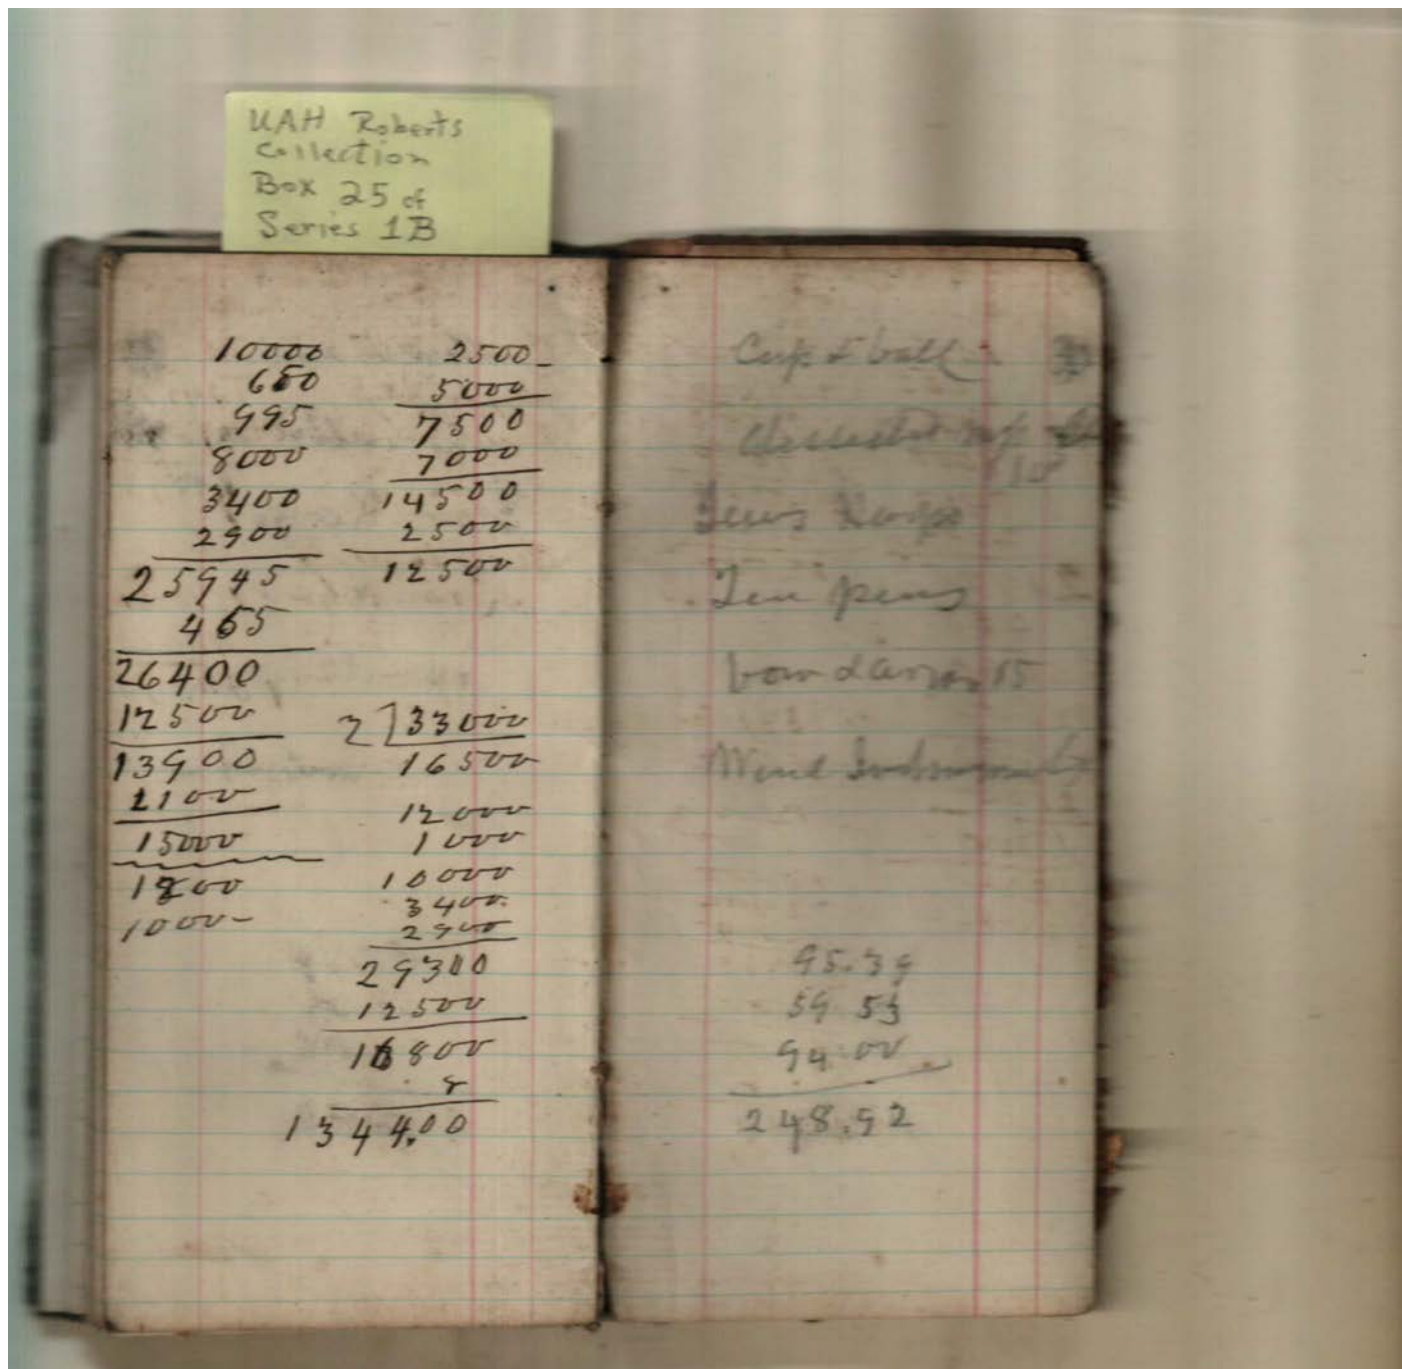 UAH Roberts
Collection
Box 25 of
Series 1B
10000
650
995
8000
3400
2900
25945
465
26400
12500
13900
1100
15000
1200
1000-
2500-
5000
7500
7000
14500
2500
12500
2 33000
16500
12000
1000
10000
3400
2900
29300
12500
16800
8
1344.00
Cup & ball
10
Jews Harps
Ten pens
bow & arrow 15
Wind Instruments
95.39
59.53
94.00
248.92